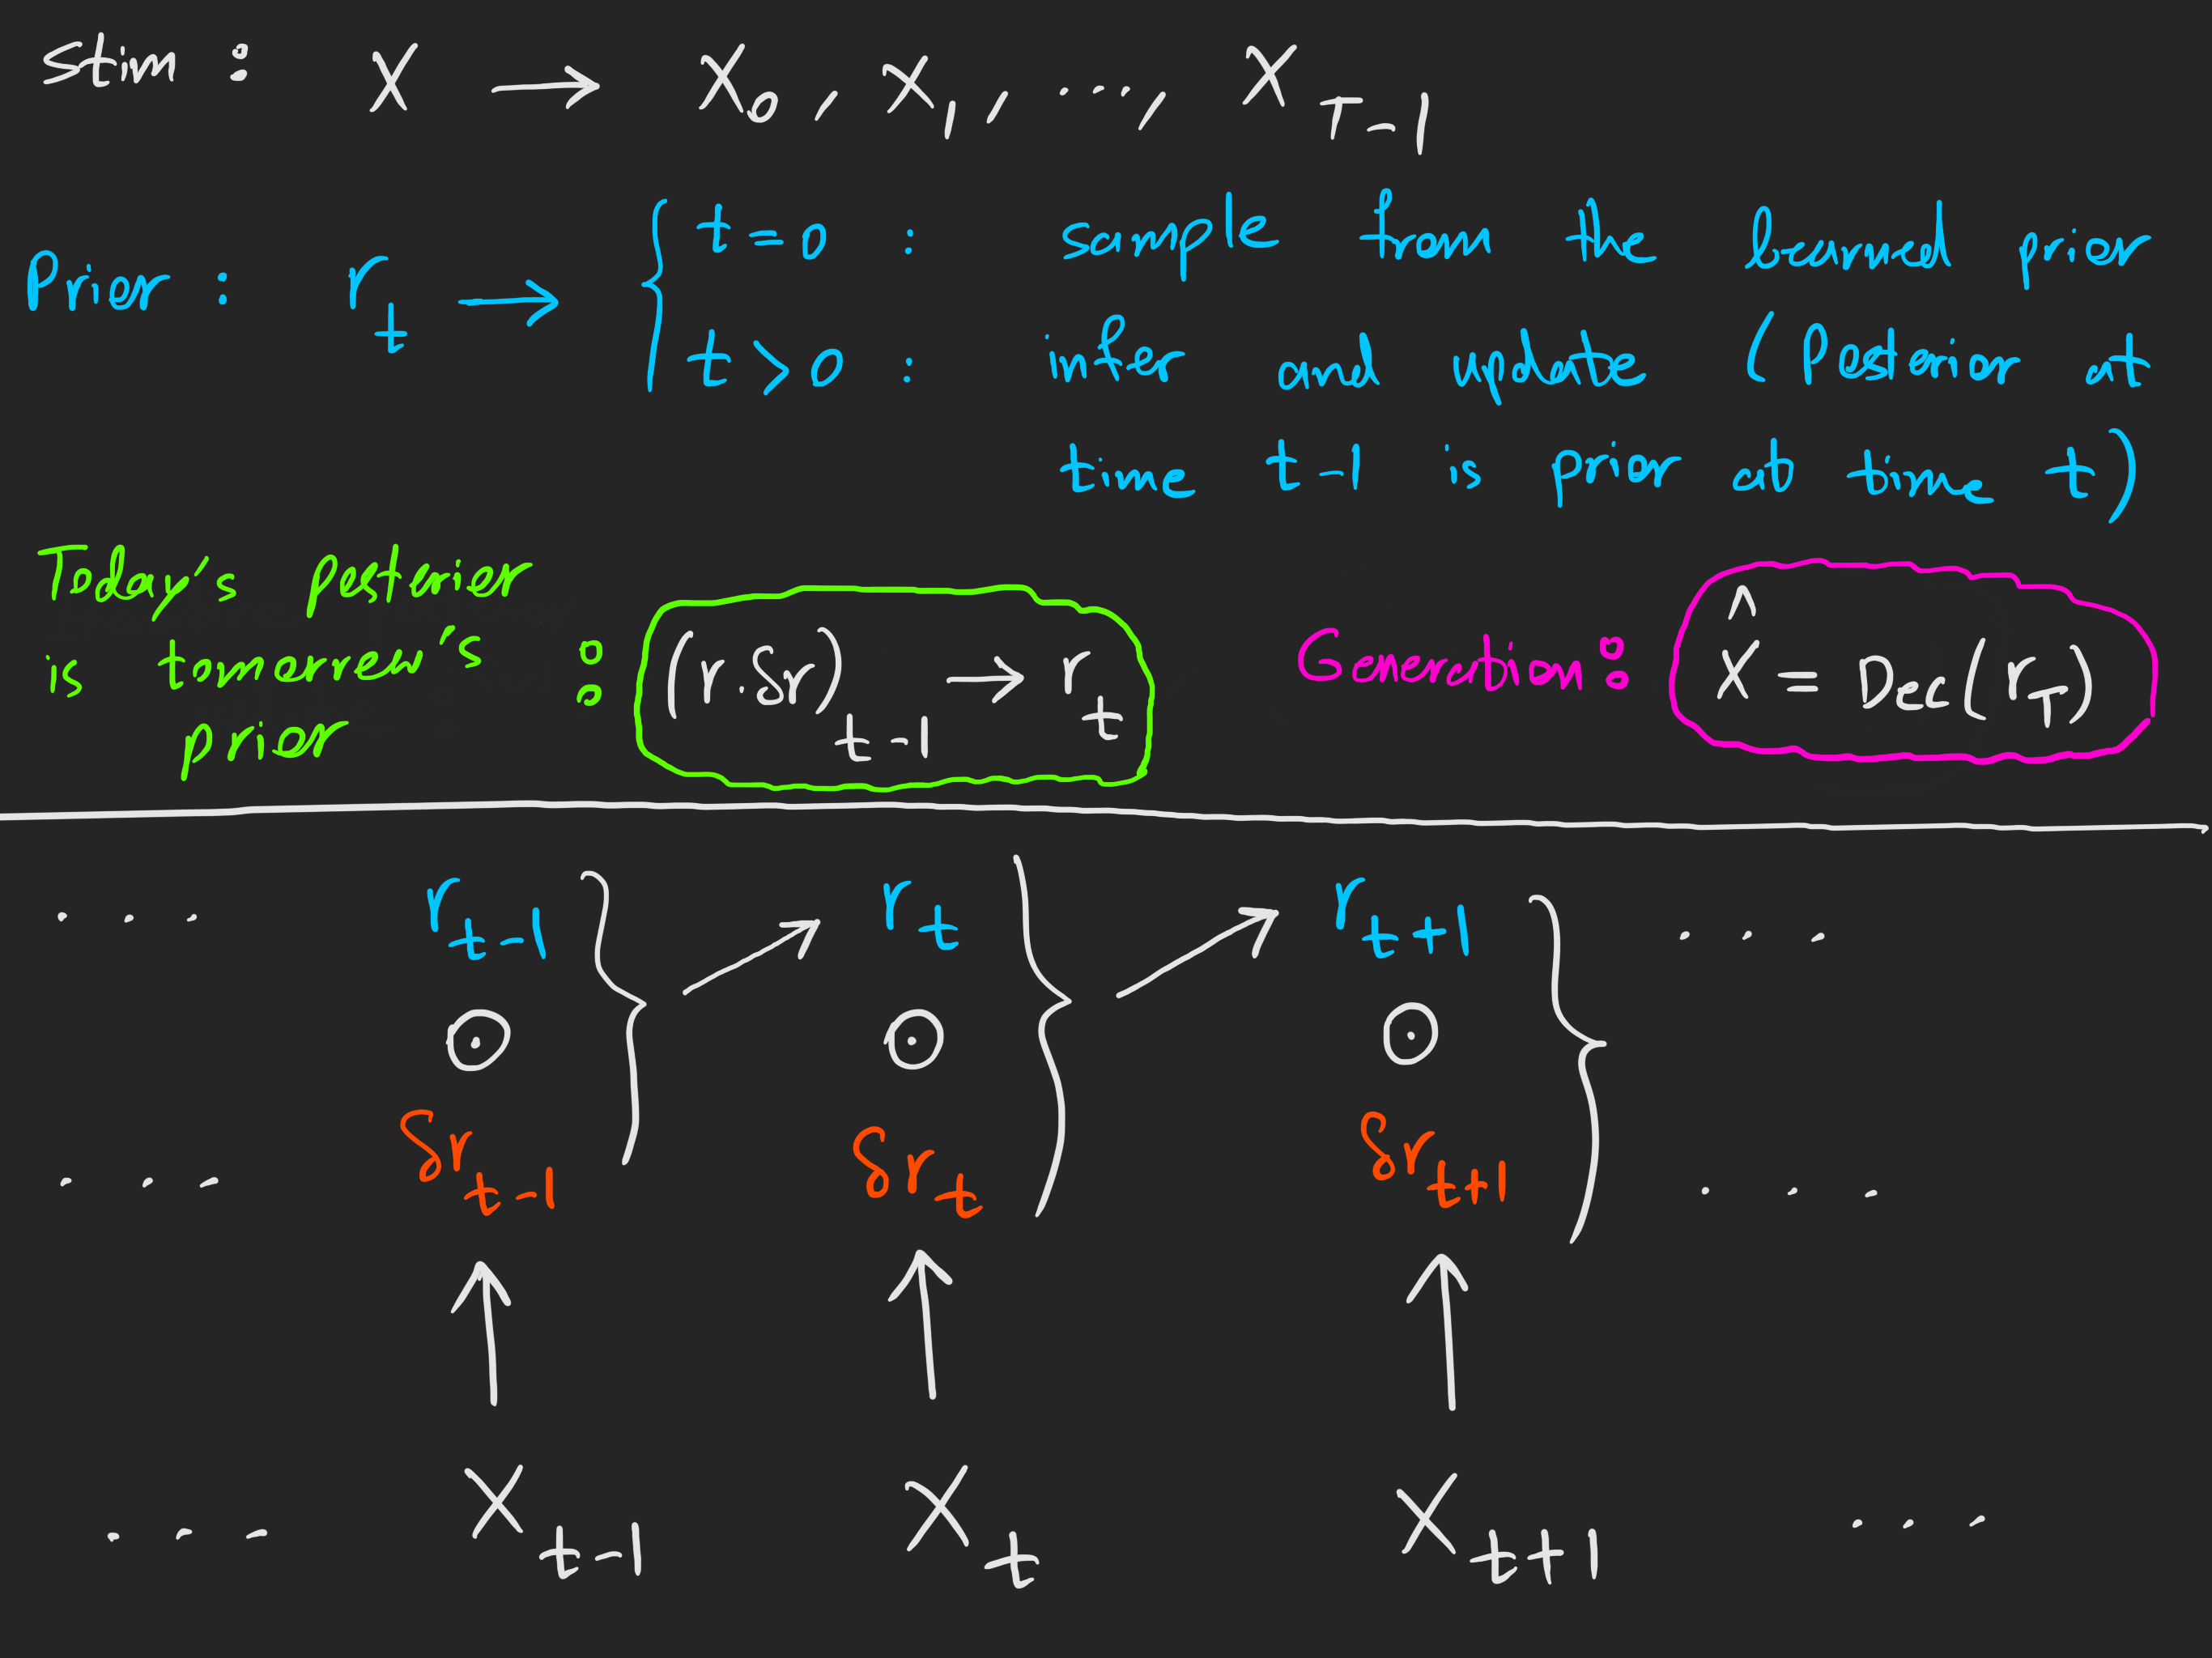 Stim : X → X₀ , X₁ , ..., X_{T-1}
Prior : r_t → { t = 0 : sample from the learned prior
t > 0 : infer and update (Posterior at
time t-1 is prior at time t)
Today's posterior
is tomorrow's :
prior
(r·δr)_{t-1} → r_t
Generation : X̂ = Dec(r_T)
... r_{t-1} } → r_t } → r_{t+1} } ...
⊙ ⊙ ⊙
... δr_{t-1} δr_t δr_{t+1} ...
↑ ↑ ↑
... X_{t-1} X_t X_{t+1} ...